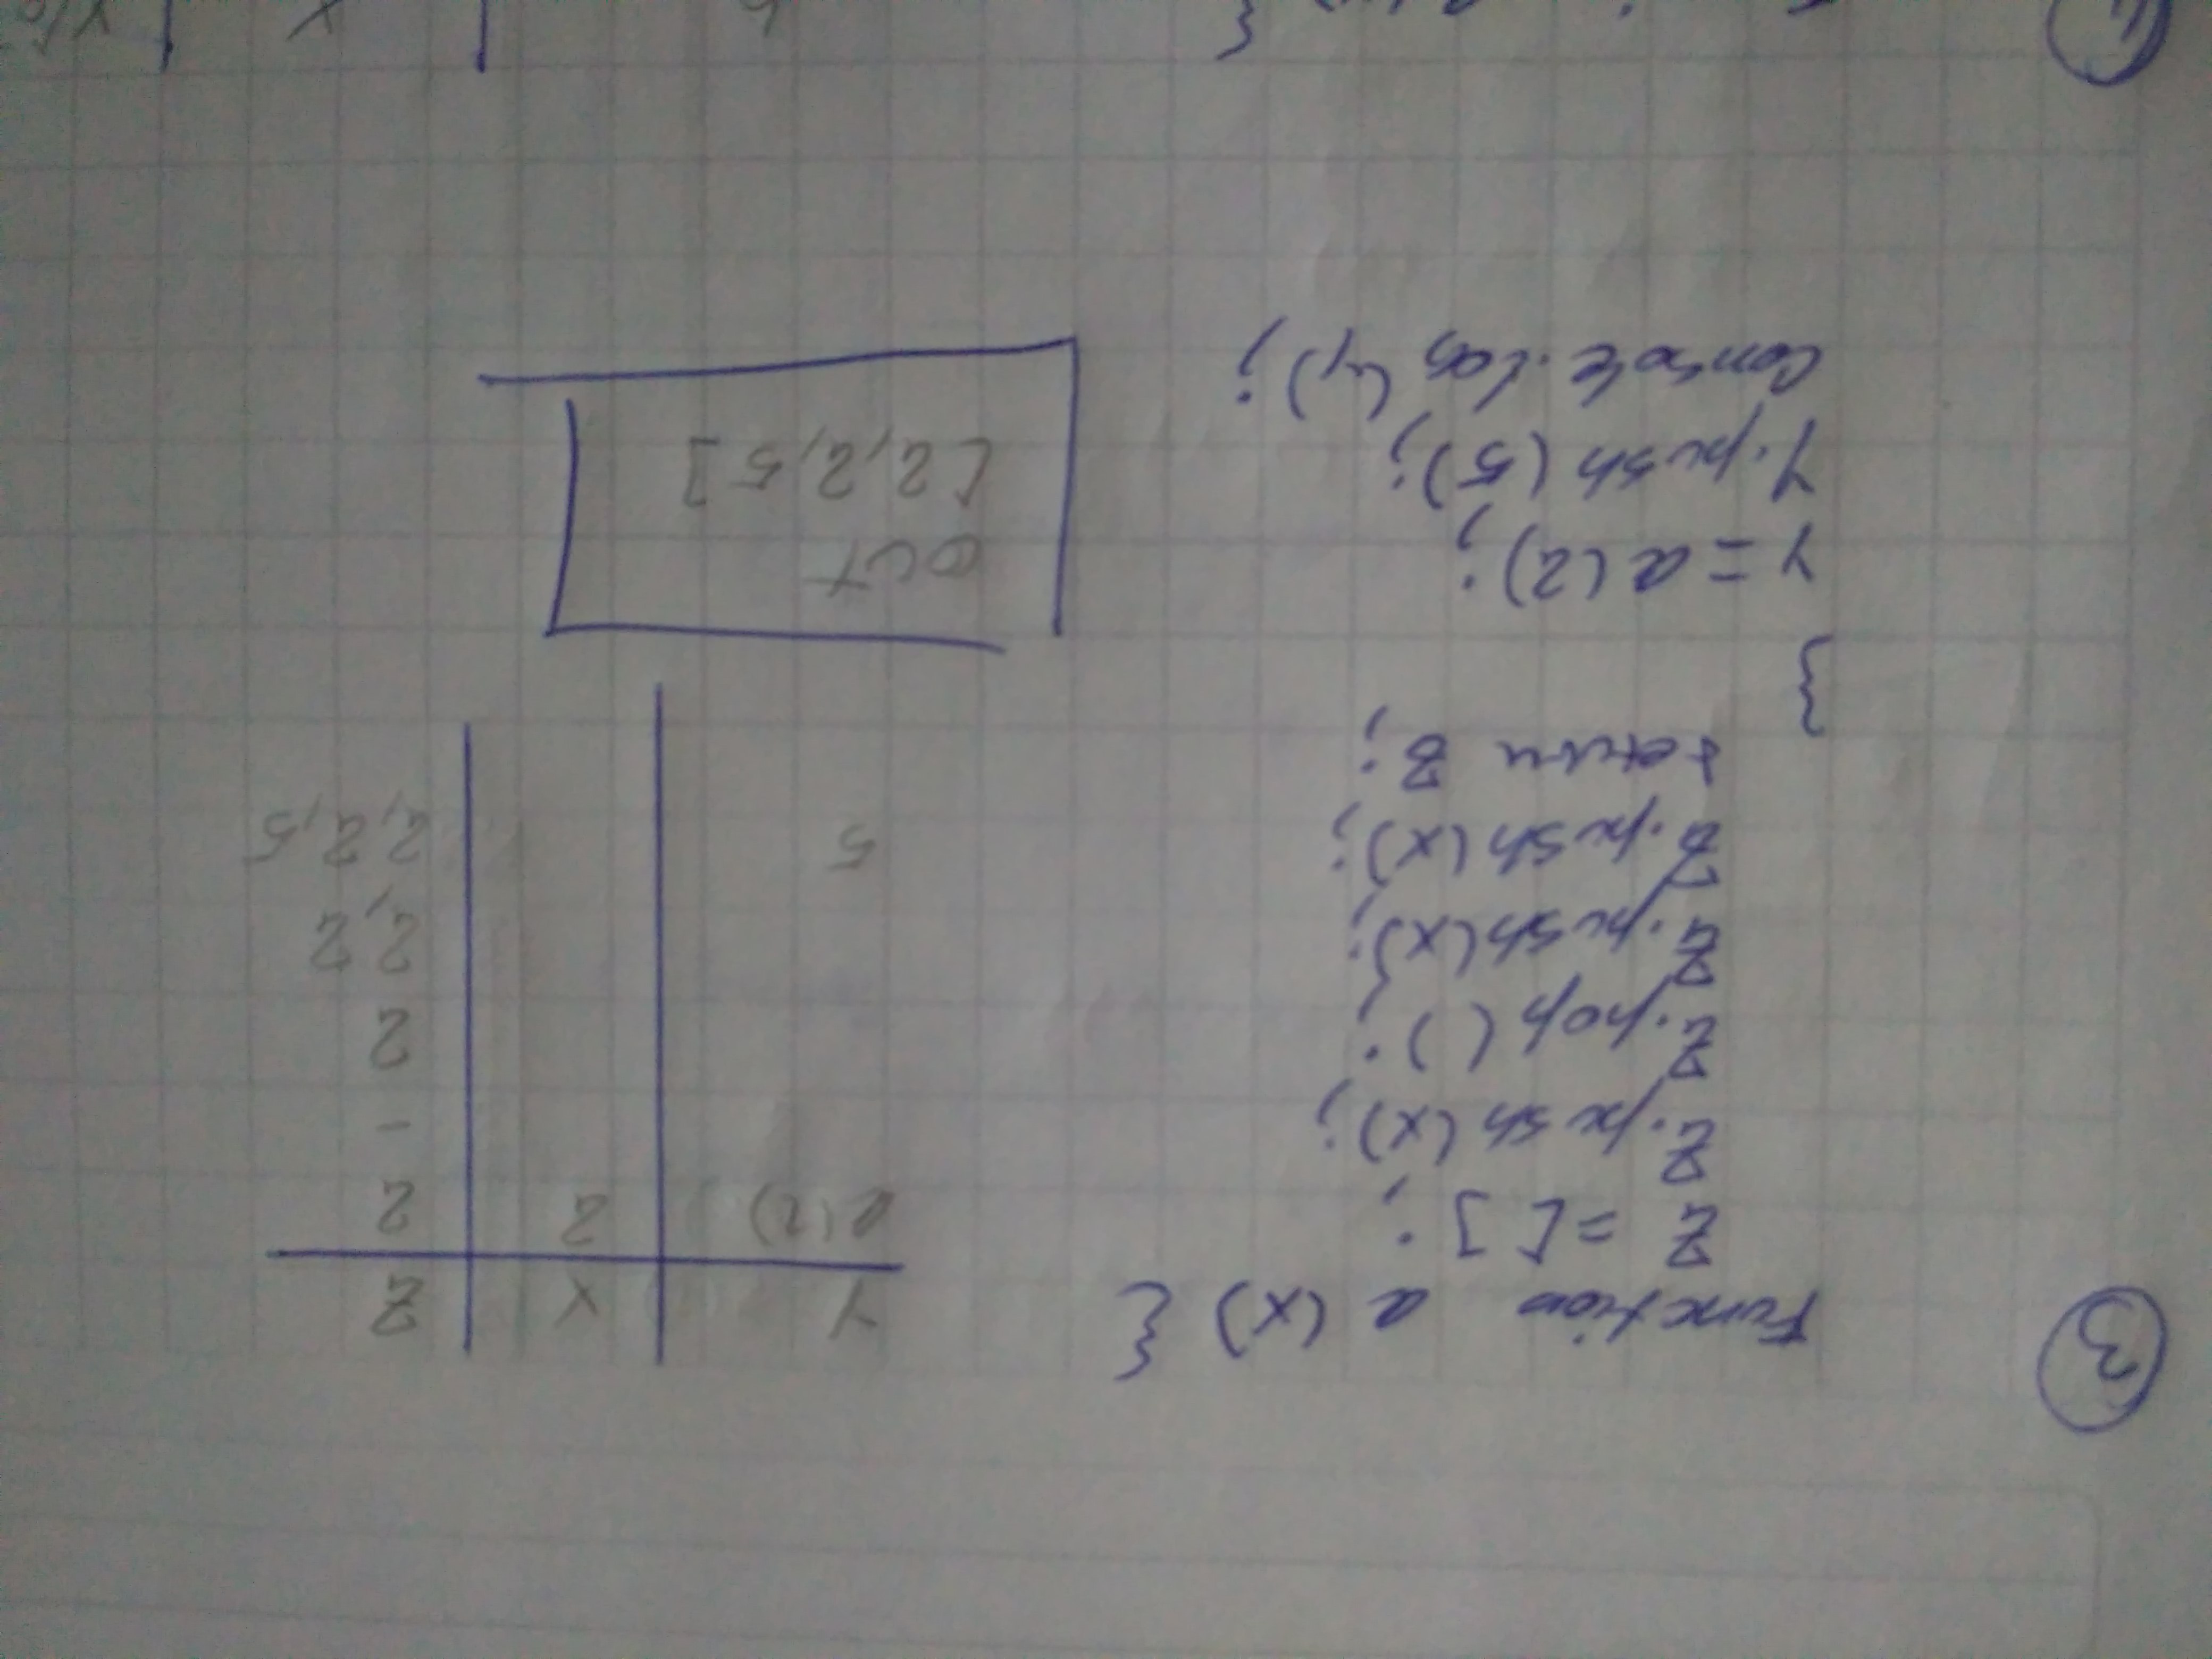 ③
Function a (x) {
Z = [ ];
Z.push(x);
Z.pop( );
Z.push(x);
Z.push(x);
return Z;
}
Y = a(2);
Y.push(5);
Console.log(y);
Y X Z
a(2) 2 2
-
2
2,2
5 2,2,5
out
[2,2,5]